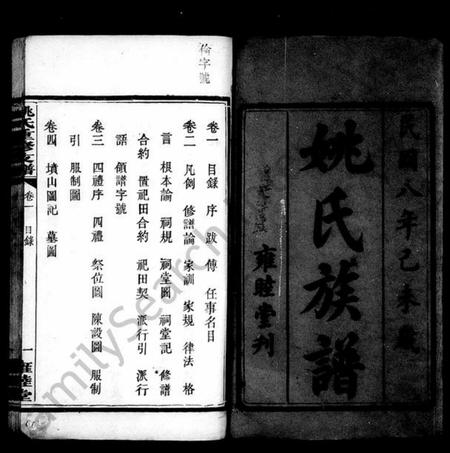 民國八年己未歲
姚氏族譜
雍睦堂刋
倫字號
卷一 目錄 序 跋 傳 任事名目
卷二 凡例 修譜論 家訓 家規 律法 格
言 根本論 祠規 祠堂圖 祠堂記 修譜
合約 置祀田合約 祀田契 派行引 派行
語 領譜字號
卷三 四禮序 四禮 祭位圖 陳設圖 服制
引 服制圖
卷四 墳山圖記 墓圖
姚氏重修支譜 卷一 目錄 一 雍睦堂
FamilySearch